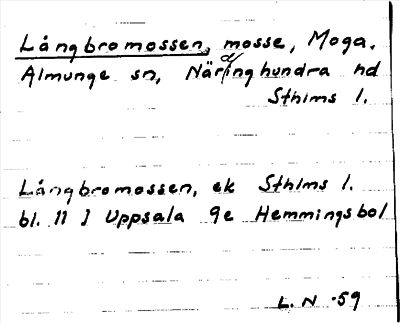 Långbromossen, mosse, Moga.
Almunge sn, Närdinghundra hd
Sthlms l.
Långbromossen, ek Sthlms l.
bl. 11 I Uppsala 9e Hemmingsbol
L. N -59